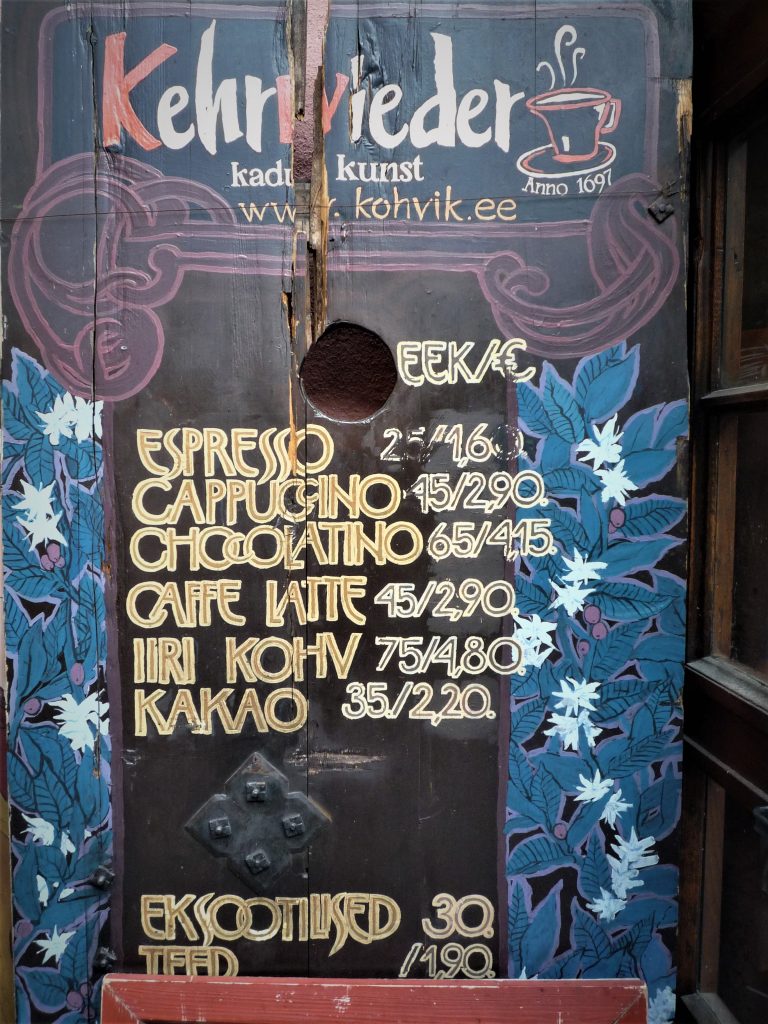 Kehrwieder
kadu kunst
Anno 1697
www.kohvik.ee
EEK/€
ESPRESSO 25/1,60.
CAPPUCCINO 45/2,90.
CHOCOLATINO 65/4,15.
CAFFE LATTE 45/2,90.
IIRI KOHV 75/4,80.
KAKAO 35./2,20.
EKSOOTILISED 30.
TEED /1,90.